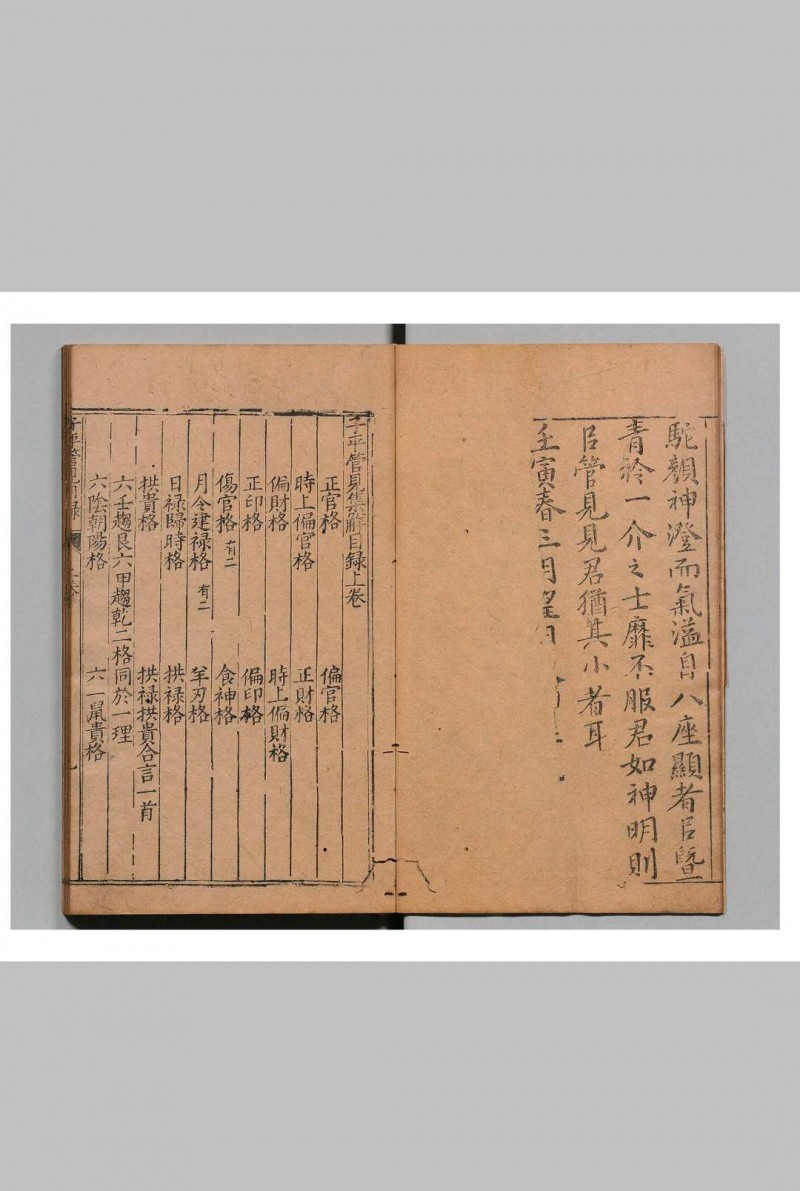 駝顏神澄而氣溢自八座顯者㠯曁
青衿一介之士靡不服君如神明則
㠯管見見君猶其小者耳
壬寅春三月望日
子平管見集解目録上卷
正官格 偏官格
時上偏官格 正財格
偏財格 時上偏財格
正印格 偏印格
傷官格 有二 食神格
月令建禄格 有二 羊刃格
日禄歸時格 拱禄格
拱貴格 拱禄拱貴合言一首
六壬趨艮六甲趨乾二格同於一理
六陰朝陽格 六一鼠貴格
子平管見目録 上卷 九